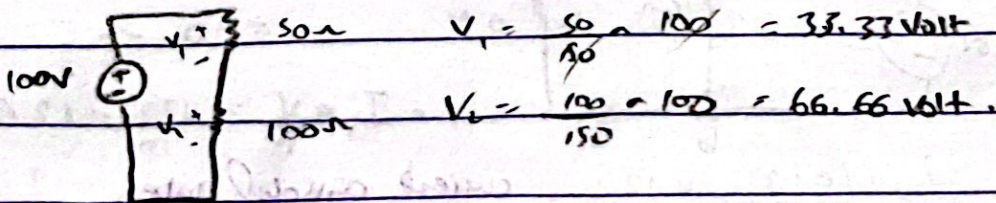 V₁ + - 50Ω V₁ = 50/150 × 100 = 33.33 Volt
100V + -
V₂ + - 100Ω V₂ = 100/150 × 100 = 66.66 Volt.